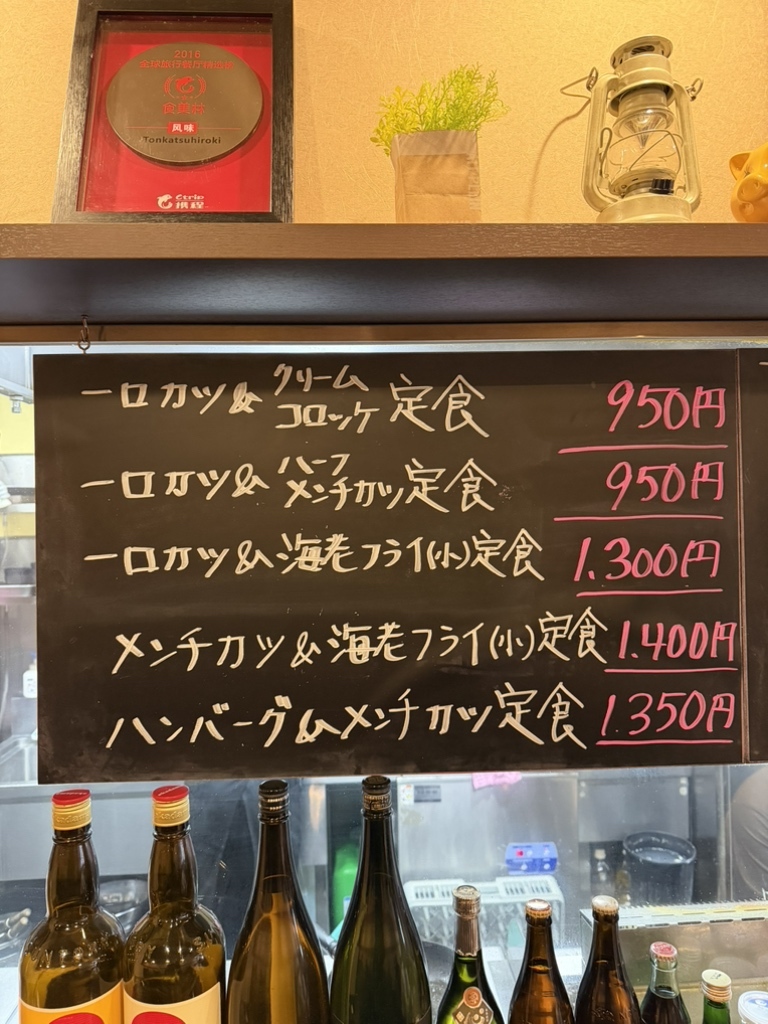 2016
食美林
风味
Tonkatsuhiroki
Ctrip
携程
一口カツ&クリームコロッケ定食 950円
一口カツ&ハーフメンチカツ定食 950円
一口カツ&海老フライ(小)定食 1.300円
メンチカツ&海老フライ(小)定食 1.400円
ハンバーグ&メンチカツ定食 1.350円